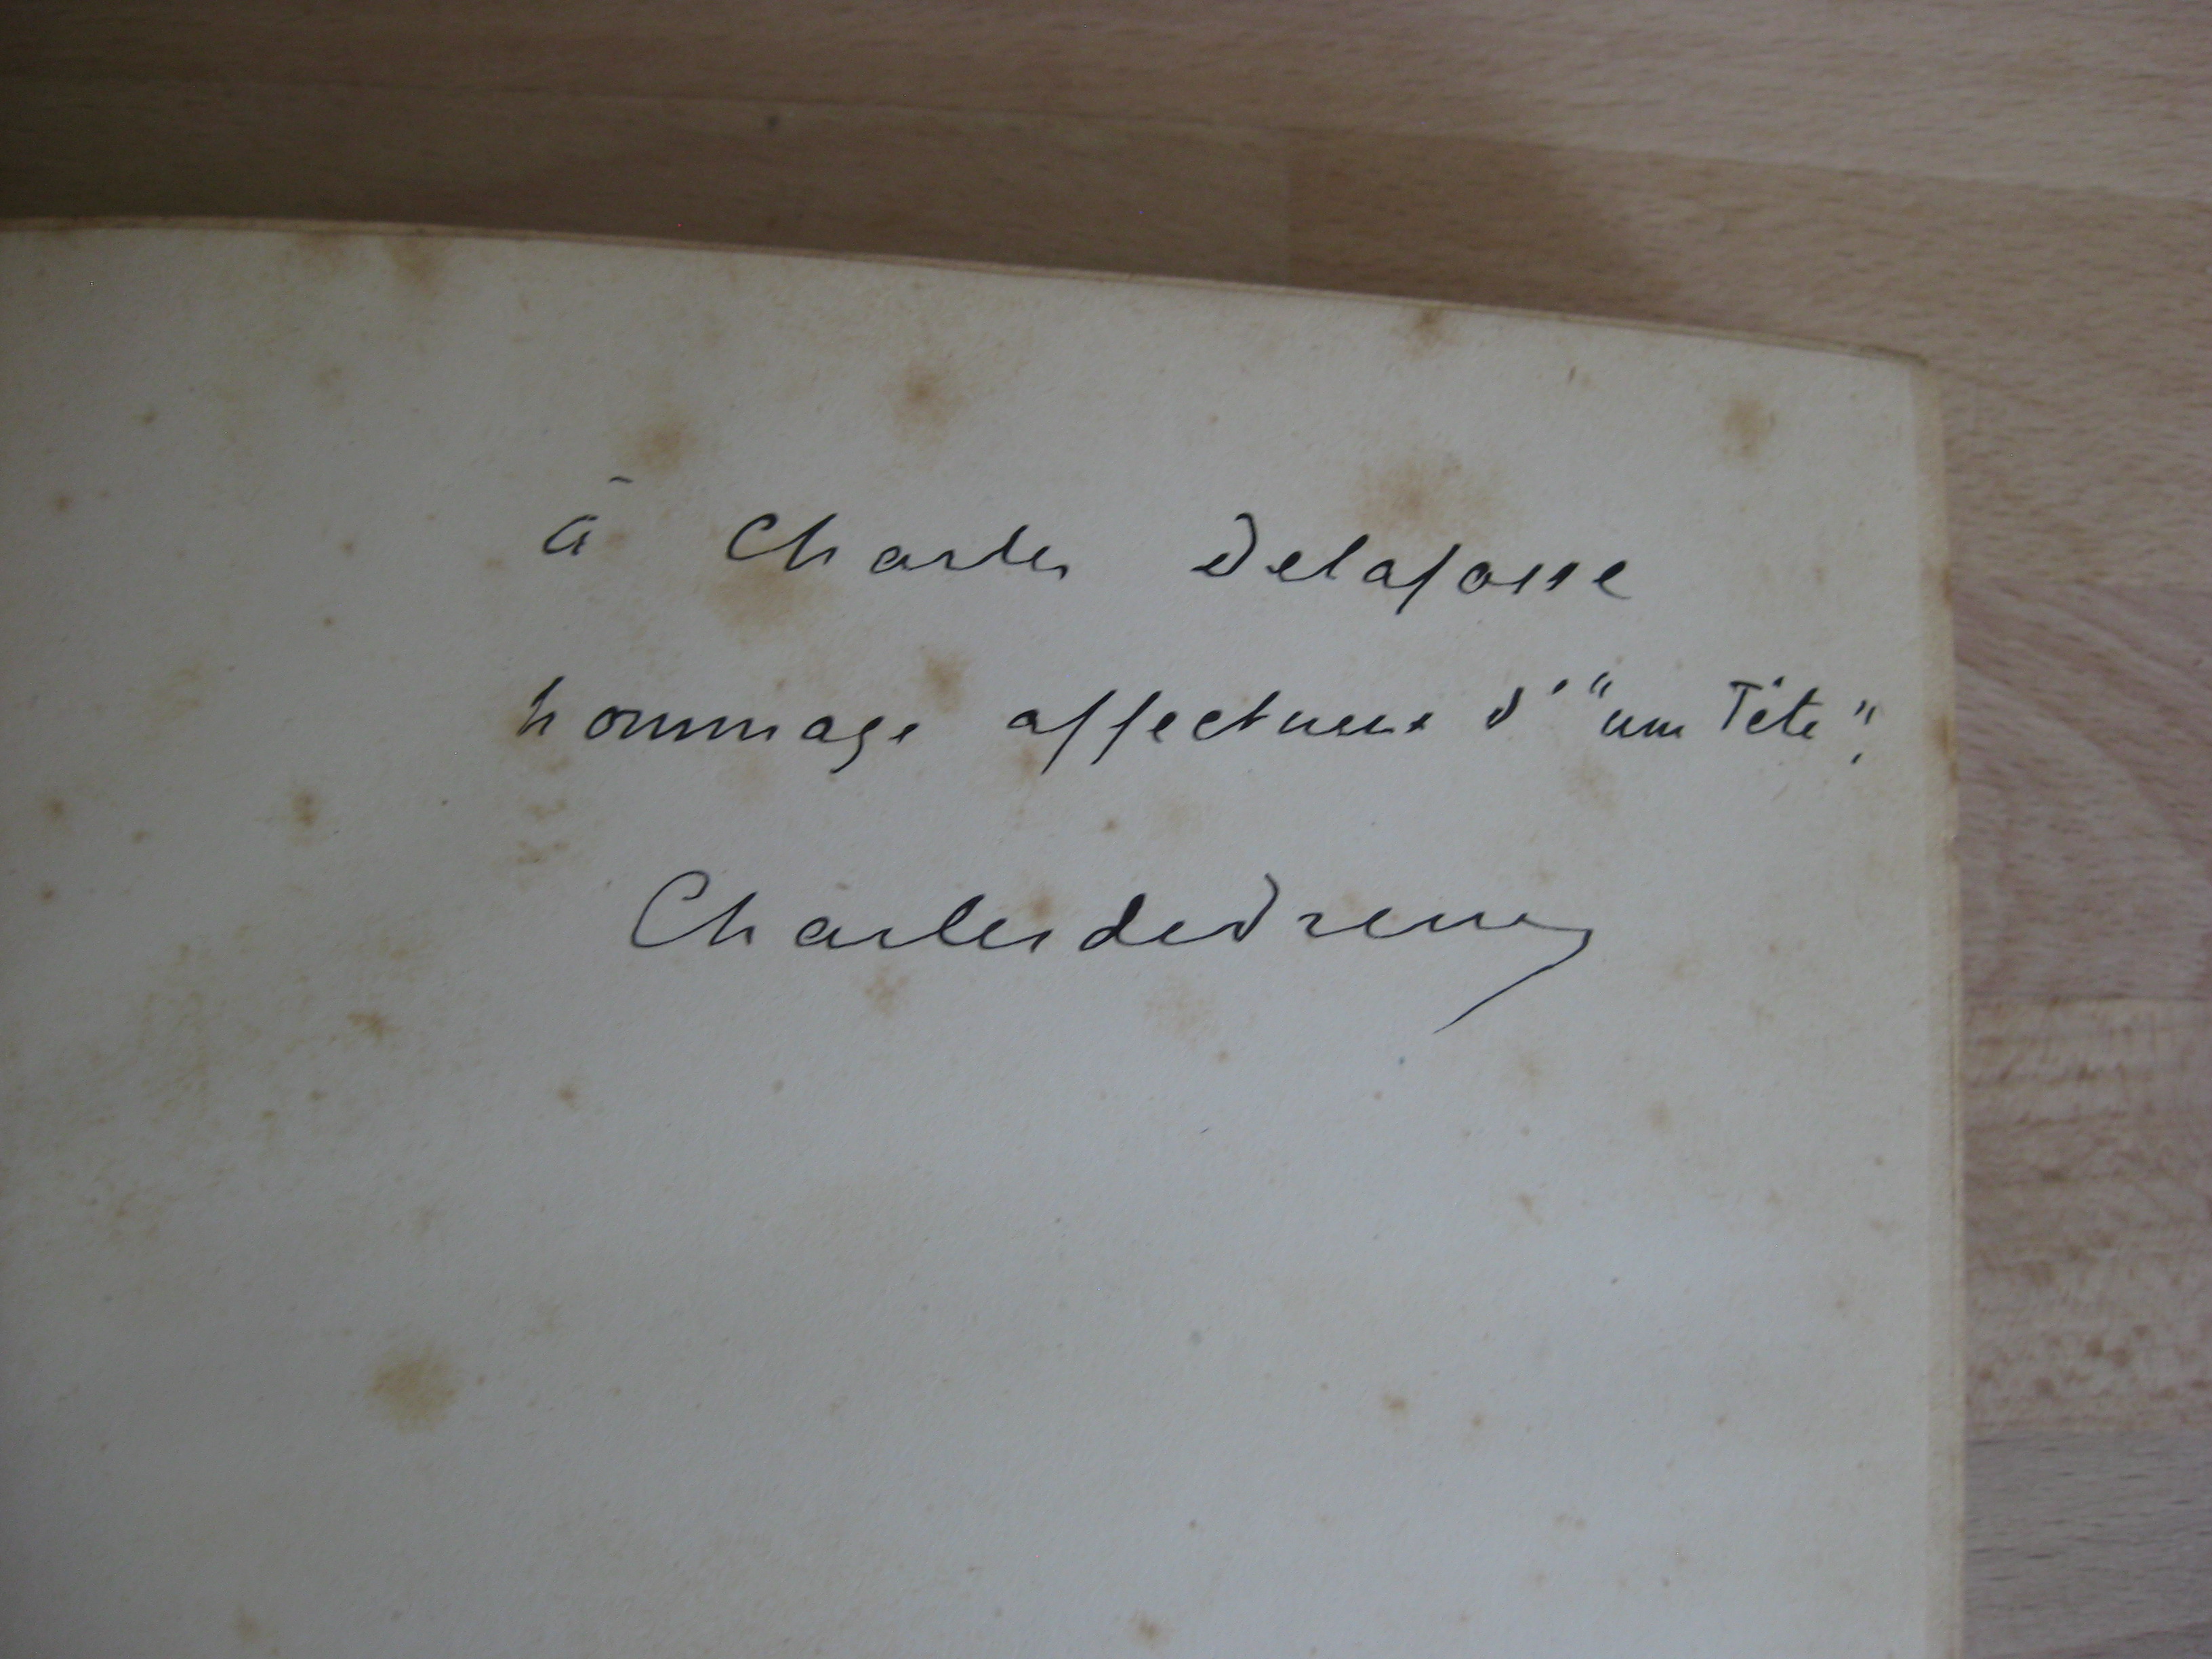 à Charles Delafosse
hommage affectueux d'"une Tête".
Charles